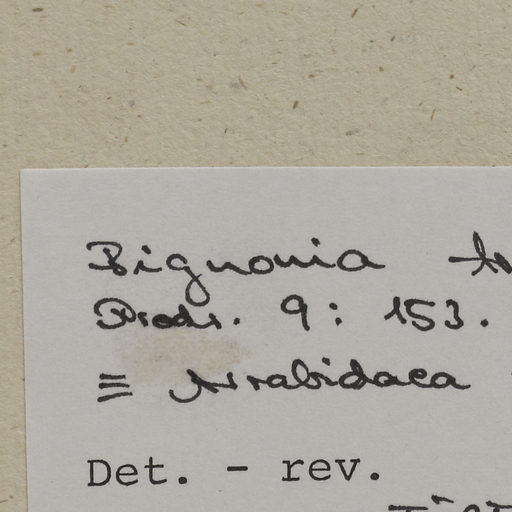 Bignonia
Prodr. 9: 153.
≡ Arrabidaea
Det. - rev.